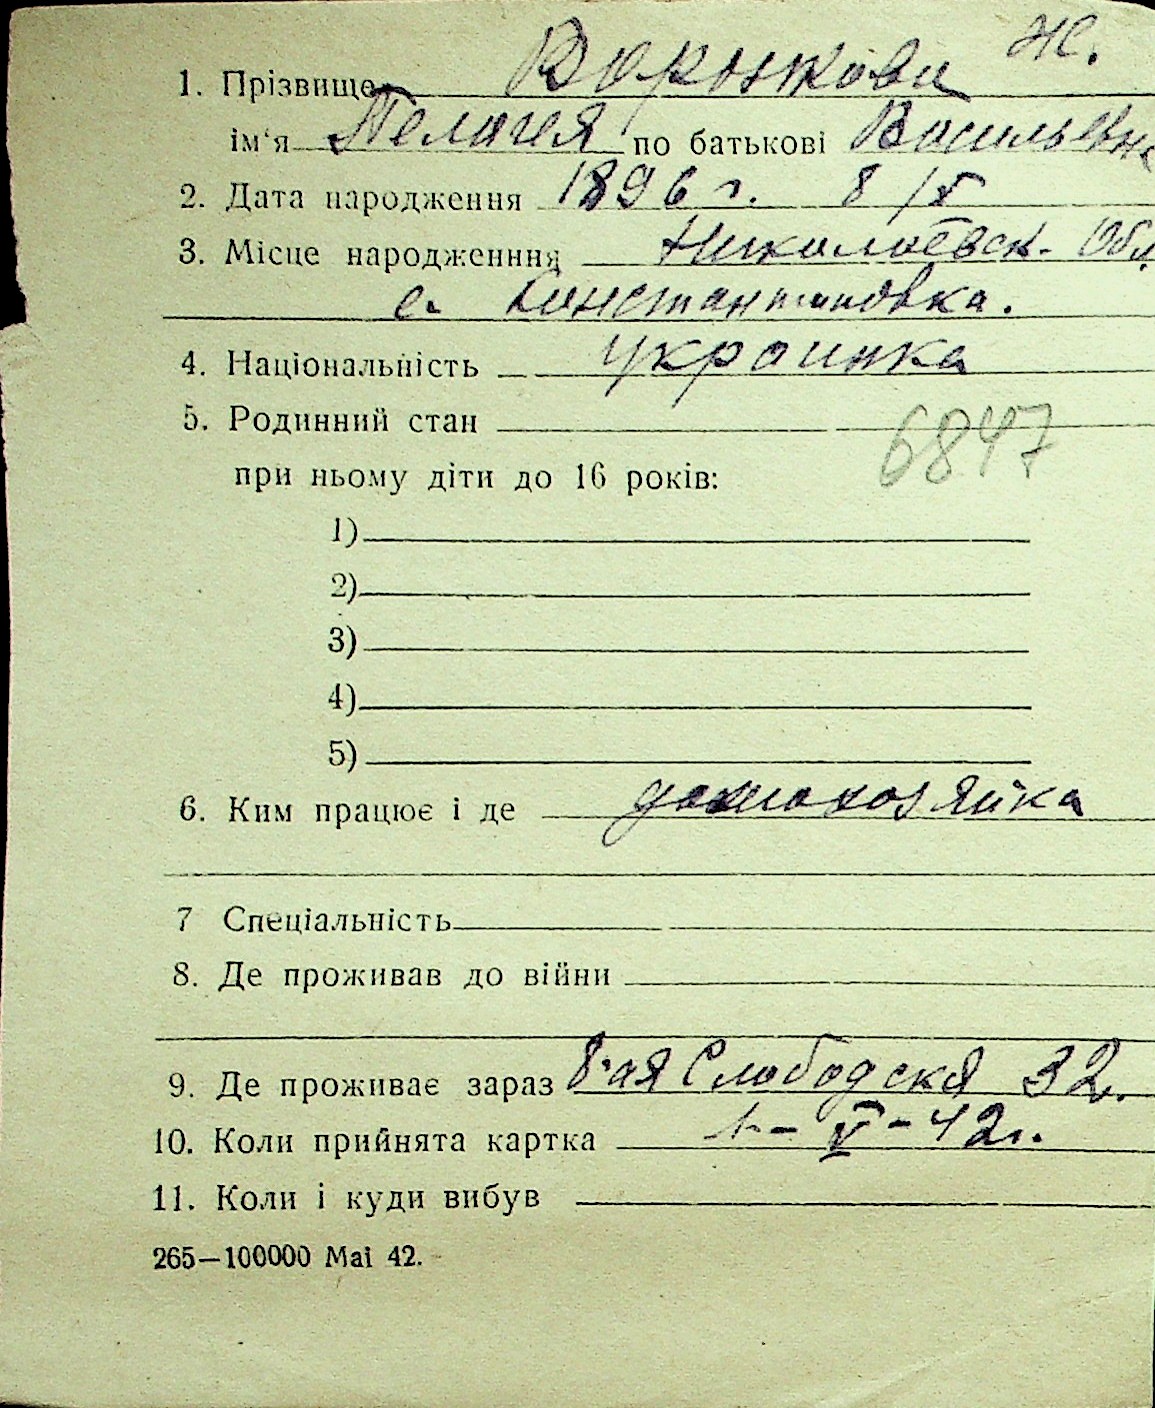 Ж.
1. Прізвище Воронкова
ім'я Пелагея по батькові Васильевна
2. Дата народження 1896 г. 8/X
3. Місце народженння Николаевск. Обл.
с. Константиновка.
4. Національність украинка
5. Родинний стан
6847
при ньому діти до 16 років:
1)
2)
3)
4)
5)
6. Ким працює і де домохозяйка
7 Спеціальність
8. Де проживав до війни
9. Де проживає зараз 8-ая Слободскя 32.
10. Коли прийнята картка 1-V-42г.
11. Коли і куди вибув
265—100000 Mai 42.